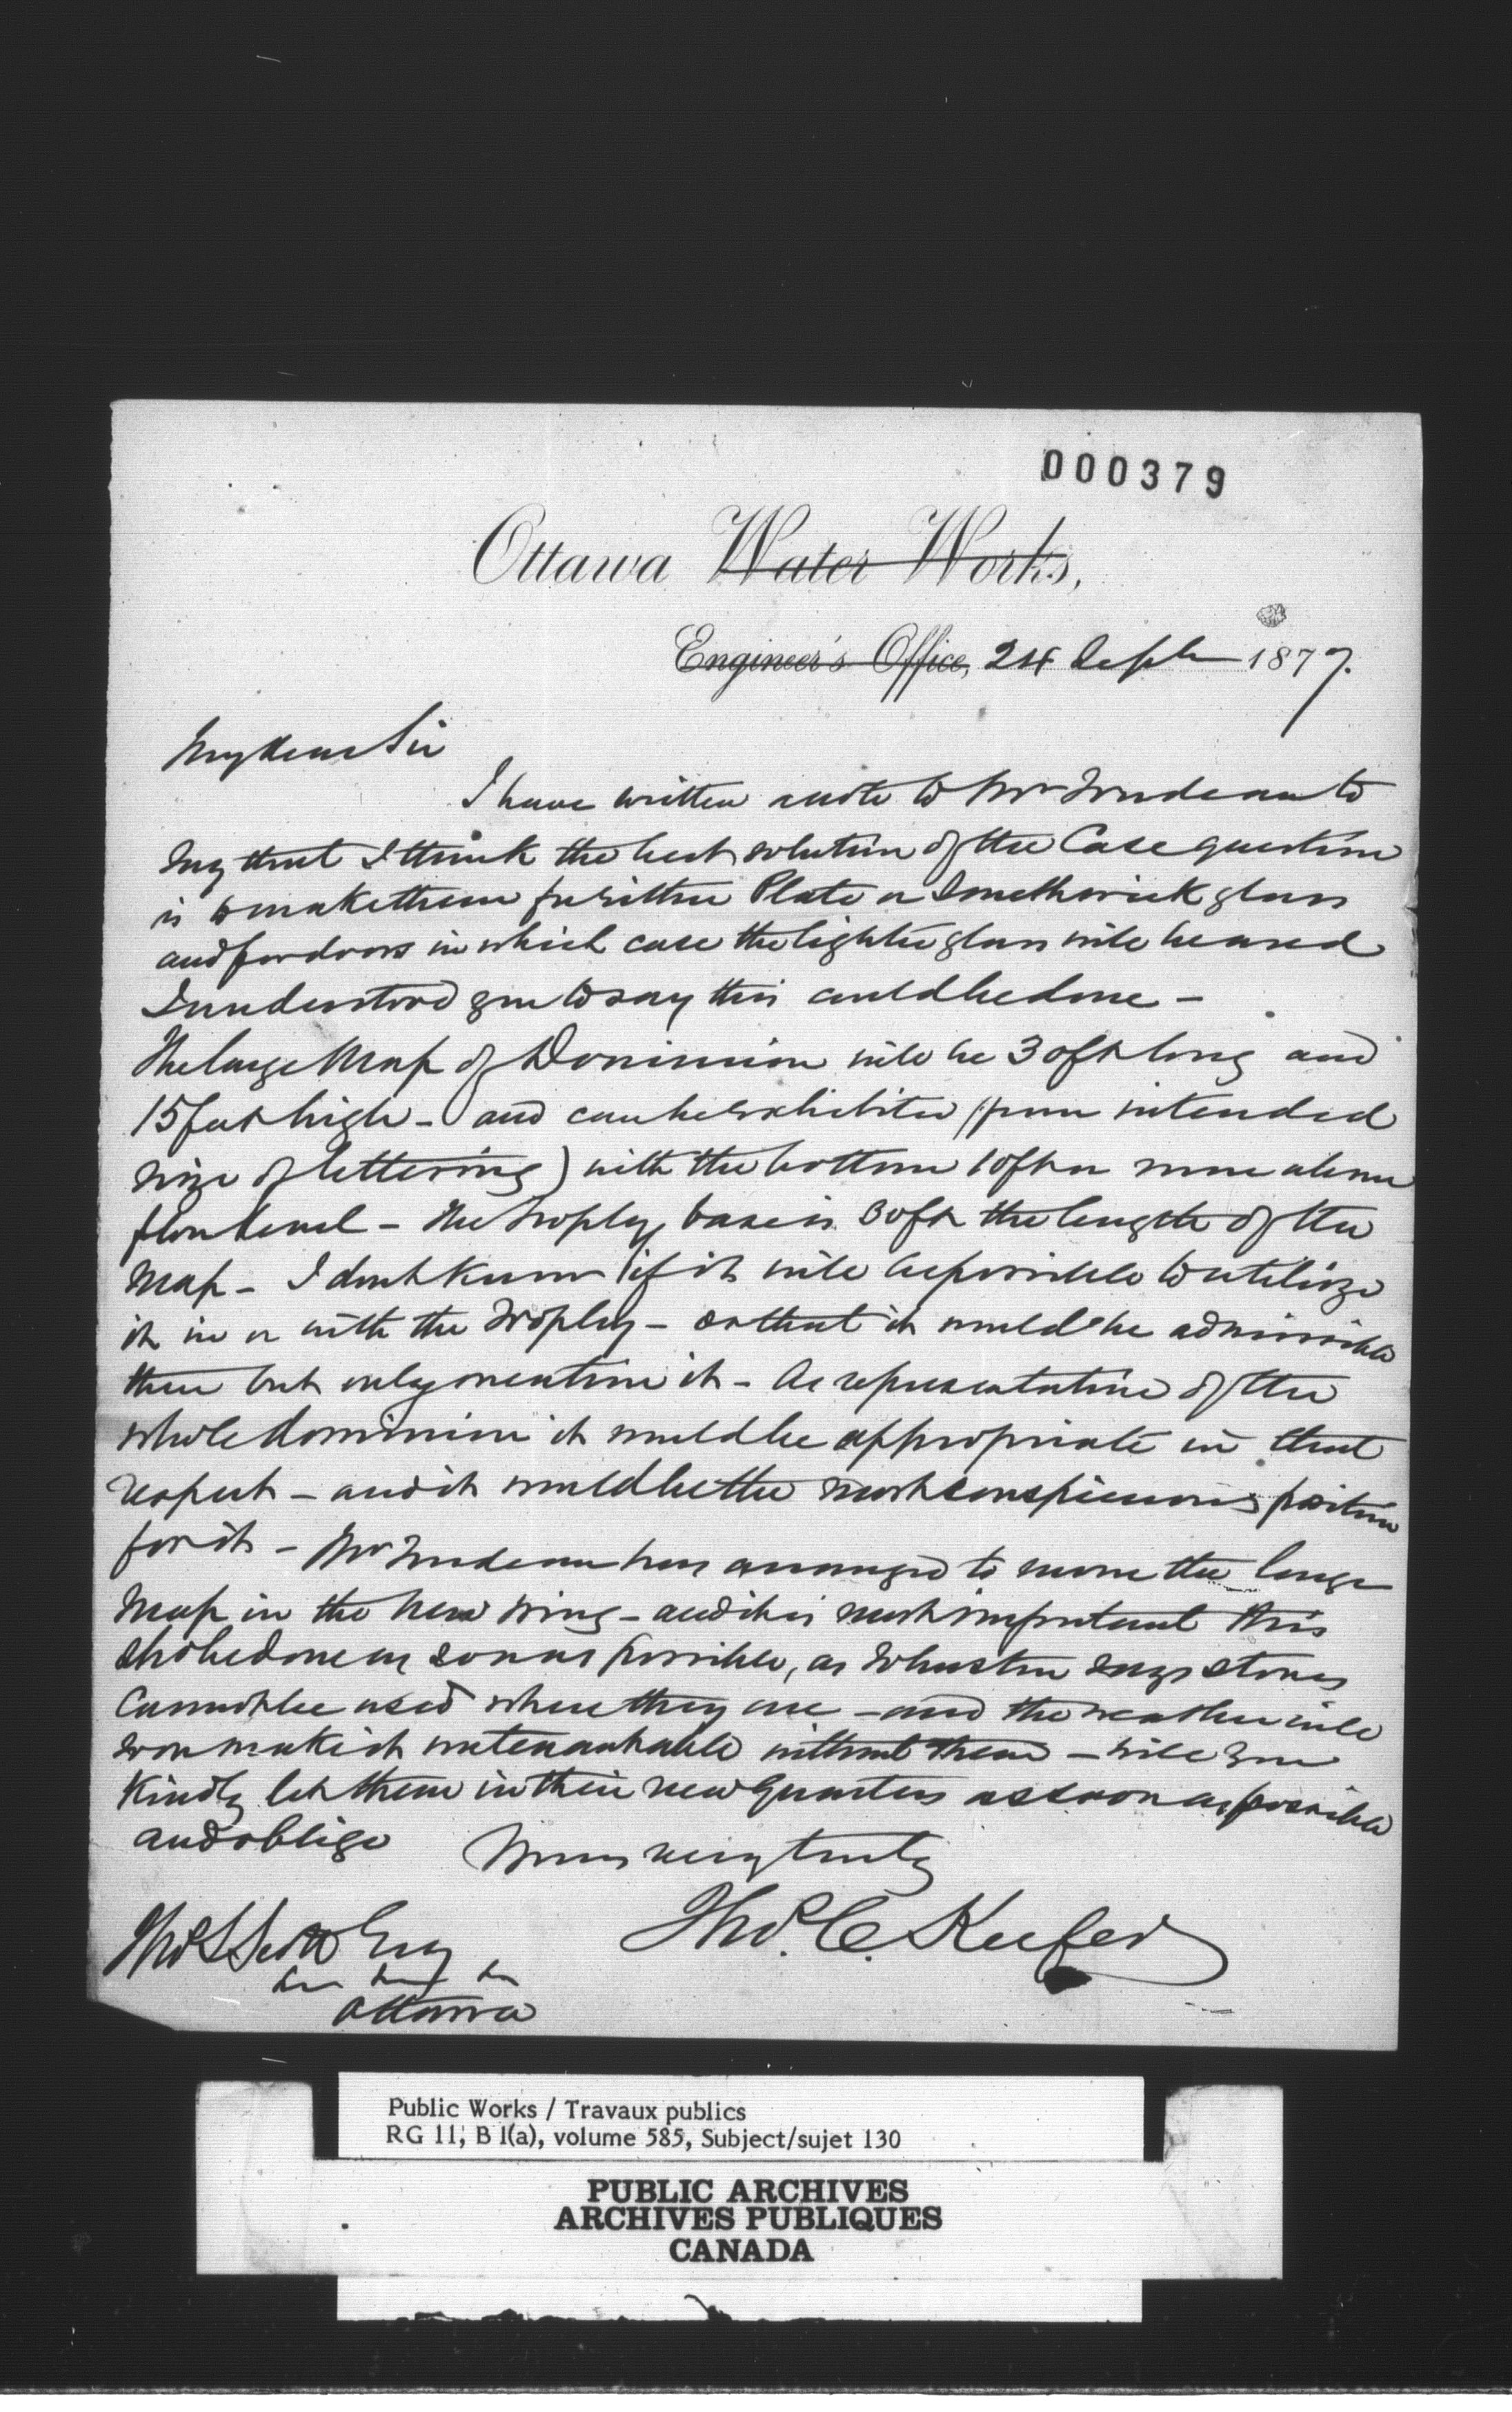 000379
Ottawa Water Works,
Engineer's Office, 24 Septr 1877.
My dear Sir
I have written a note to Mr Trudeau to
say that I think the best solution of the Case question
is to make them for either Plate or Smethwick glass
and for doors in which case the lighter glass will be used
I understood you to say this could be done -
The large Map of Dominion will be 30 ft long and
15 feet high - and can be exhibited (from intended
size of lettering) with the bottom 10 ft or more above
floor level - The trophy base is 30 ft the length of the
Map - I dont know if it will be possible to utilize
it in or with the Trophy - or that it would be admissible
there but only mention it - As representative of the
whole Dominion it would be appropriate in that
respect - and it would be the most conspicuous position
for it - Mr Trudeau has arranged to move the large
Map in the new wing - and it is most important this
shd be done as soon as possible, as says stoves
Cannot be used where they are - and the weather will
soon make it untenantable without them - will you
Kindly let them in their new Quarters as soon as possible
and oblige
Yours very truly
Thos. C. Keefer
Thos S Scott Esq
Ottawa
Public Works / Travaux publics
RG 11, B 1(a), volume 585, Subject/sujet 130
PUBLIC ARCHIVES
ARCHIVES PUBLIQUES
CANADA